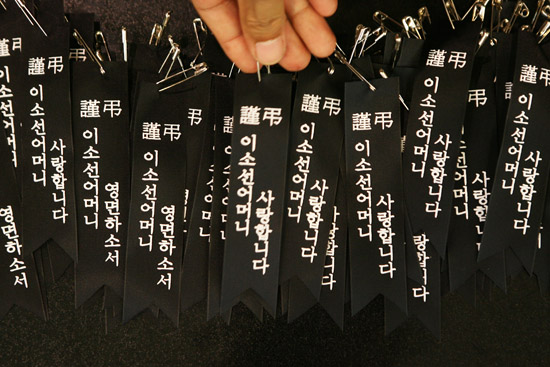 이소선어머니
영면하소서
이소선어머니
사랑합니다
謹弔
이소선어머니
영면하소서
謹弔
이소선어머니
영면하소서
謹弔
이소선어머니
사랑합니다
謹弔
이소선어머니
사랑합니다
謹弔
이소선어머니
사랑합니다
랑합니다
謹弔
이소선어머니
사랑합니다
弔
謹弔
이소선어머니
사랑합니다